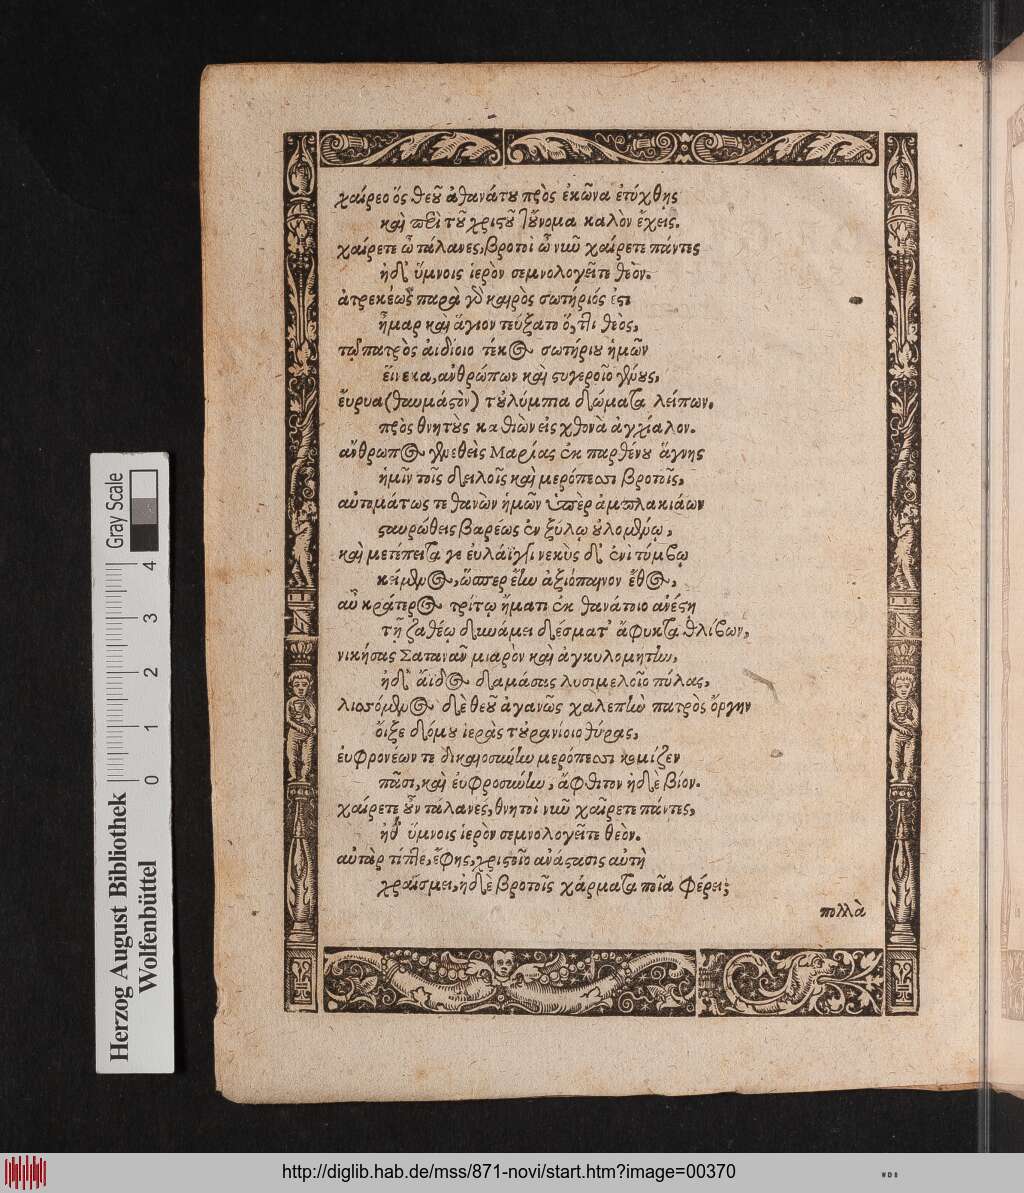 χαίρεο ὅς θεοῦ ἀθανάτου πρὸς ἐκῶνα ἐτύχθης
καὶ περὶ τοῦ χριστοῦ τοὔνομα καλὸν ἔχεις.
χαίρετε ὦ τάλανες, βροτοὶ ὦ νῦν χαίρετε πάντες
ἠδ' ὕμνοις ἱερὸν σεμνολογεῖτε θεὸν.
ἀτρεκέως παρὰ γὸ καιρὸς σωτήριός ἐστι
ἦμαρ καὶ ἅγιον τεύξατο ὅ, τι θεὸς,
τῷ πατρὸς ἀιδίοιο τέκος σωτήριου ἡμῶν
εἵνεκα, ἀνθρώπων καὶ στυγεροῖο γένους,
ἔυρυα (θαυμάστὸν) τ' οὐλύμπια δώματα λείπων.
πρὸς θνητοὺς καθιὼν εἰς χθονὰ ἀγχίαλον.
ἄνθρωπος γενεθεὶς Μαρίας ἐκ παρθένου ἅγνης
ἡμῖν τοῖς δειλοῖς καὶ μερόπεσσι βροτοῖς,
αὐτομάτως τε θανὼν ἡμῶν ὑπὲρ ἀμπλακιάων
σταυρώθεις βαρέως ἐν ξύλῳ οὐλομένῳ,
καὶ μετέπειτα γε ἐυλάϊγγι νεκὺς δ' ἐνὶ τύμβῳ
κείμενος, ὥσπερ ἔην ἀξιόπαινον ἔθος,
αὖ κράτερος τρίτῳ ἤματι ἐκ θανάτοιο ἀνέστη
τῇ ζαθέῳ δυνάμει δέσματ' ἄφυκτα θλίβων,
νικήσας Σαταναῦ μιαρὸν καὶ ἀγκυλομητὴν,
ἠδ' ἄιδος δαμάσσις λυσιμελοῖο πύλας,
λισσόμενος δὲ θεοῦ ἀγανῶς χαλεπὴν πατρὸς ὄργην
ὄιξε δόμου ἱερὰς τ' οὐρανιοιο θύρας,
ἐυφρονέων τε δικαιοσύνην μερόπεσσι κομίζεν
πᾶσι, καὶ ἐυφροσύνην, ἄφθιτον ἠδὲ βίον.
χαίρετε οὖν τάλανες, θνητοὶ νῦν χαῖρετε πάντες,
ἠδ' ὕμνοις ἱερὸν σεμνολογεῖτε θεὸν.
αὐτὰρ τίπτε, ἔφης, χριστοῖο ἀνάστασις αὐτὴ
χραίσμει, ἠδὲ βροτοῖς χάρματα ποῖα φέρει;
πολλὰ
Gray Scale
4
3
2
1
0
Herzog August Bibliothek
Wolfenbüttel
http://diglib.hab.de/mss/871-novi/start.htm?image=00370
WDB